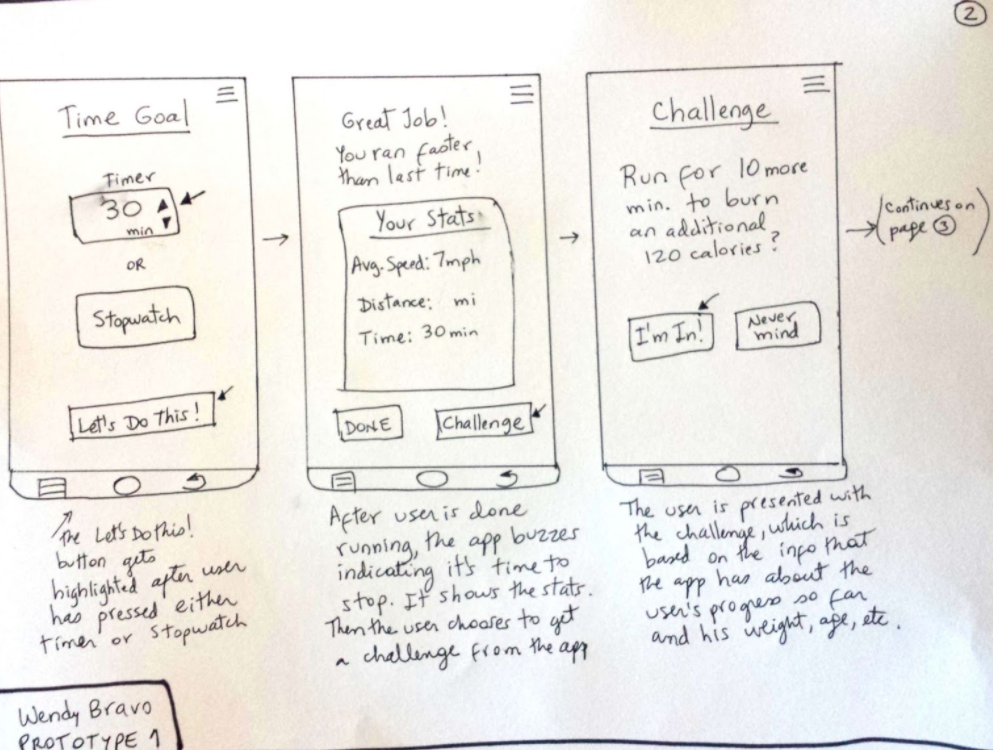 2
Time Goal
Timer
30
min
OR
Stopwatch
Let's Do This!
the Let's Do this!
button gets
highlighted after user
has pressed either
timer or Stopwatch
Great Job!
You ran faster
than last time!
Your Stats
Avg. Speed: 7mph
Distance: mi
Time: 30 min
DONE
Challenge
After user is done
running, the app buzzes
indicating it's time to
stop. It shows the stats.
Then the user chooses to get
a challenge from the app
Challenge
Run for 10 more
min. to burn
an additional
120 calories?
I'm In!
Never
mind
The user is presented with
the challenge, which is
based on the info that
the app has about the
user's progress so far
and his weight, age, etc.
(Continues on
page 3)
Wendy Bravo
PROTOTYPE 1